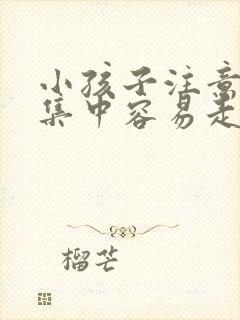 小孩子注意
集中容易走
榴芒